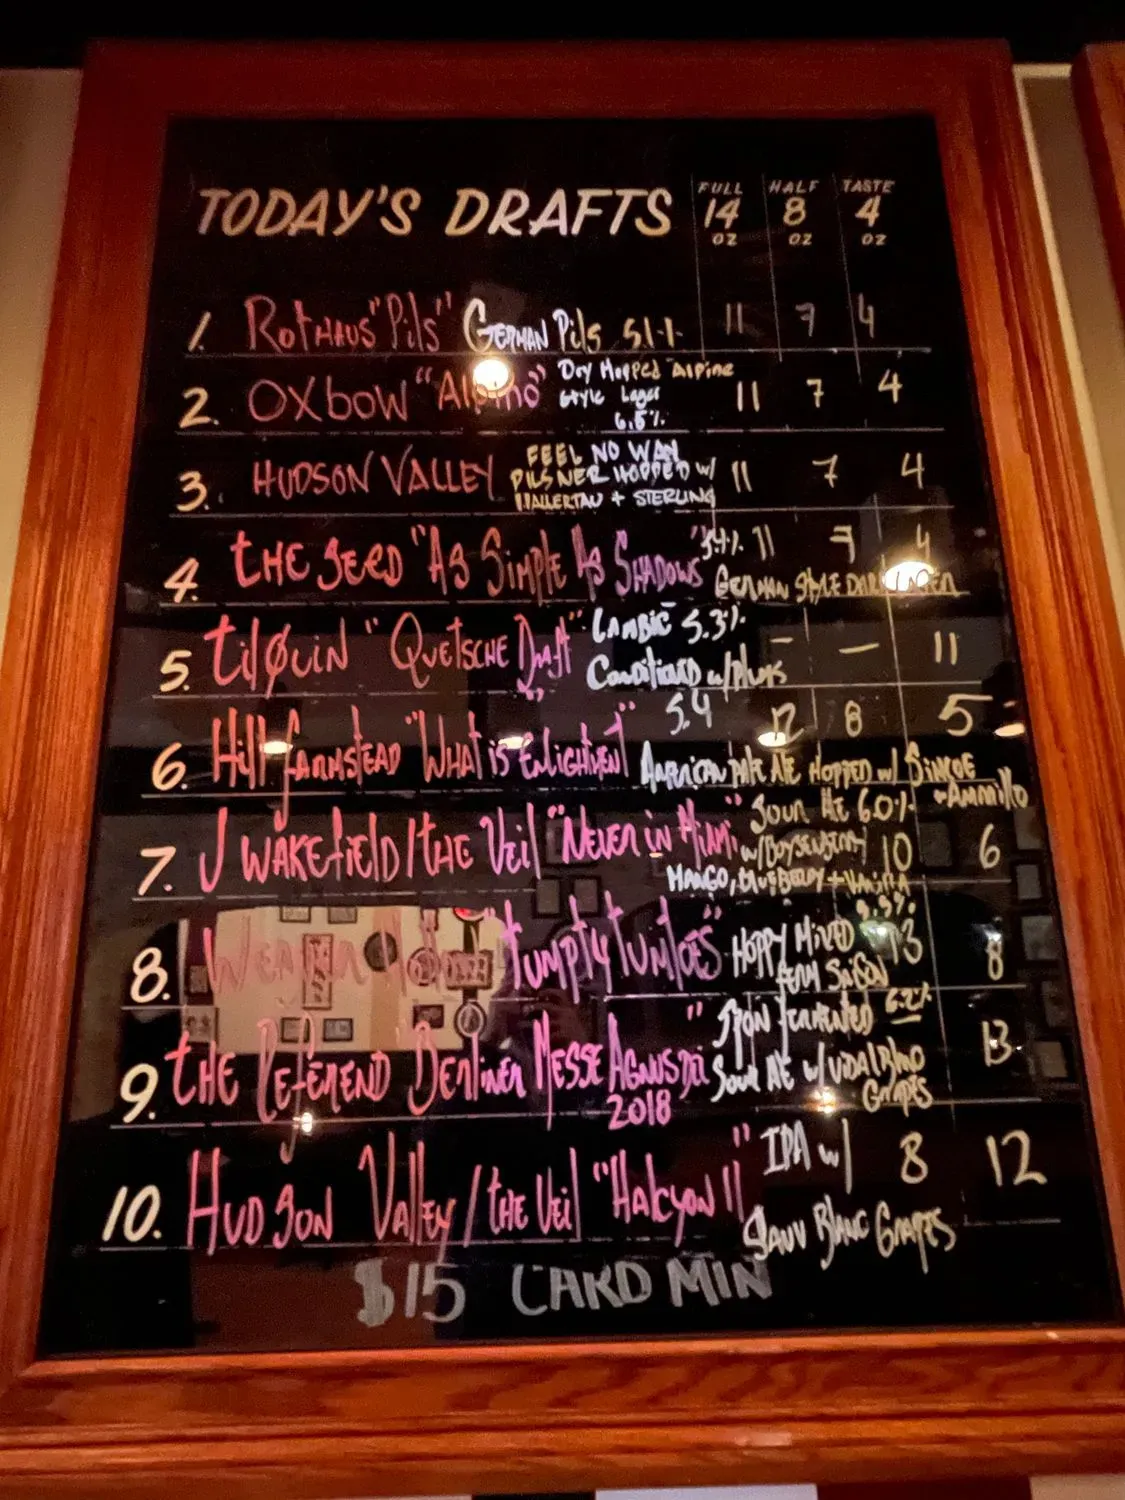 TODAY'S DRAFTS FULL 14 OZ HALF 8 OZ TASTE 4 OZ
1. ROTHAUS "Pils" GERMAN Pils 5.1% 11 7 4
2. OXBOW "Alpino" Dry Hopped Alpine
Style Lager 11 7 4
6.5%
3. HUDSON VALLEY FEEL NO WAN
PILSNER HOPPED w/ 11 7 4
HALLERTAU + STERLING
4. THE SEED "AS SIMPLE AS SHADOWS" 5.4% 11 7 4
GERMAN STYLE DARK LAGER
5. TilQUiN "QUETSCHE DRAFT" LAMBIC 5.3% – – 11
Conditioned w/ Plums
6. Hill FARMSTEAD "WHAT iS ENLIGHTMENT" 5.4 12 8 5
AMERICAN PALE ALE HOPPED w/ SIMCOE
+ AMARillO
7. J WAKEFIELD/THE VEiL "NEVER IN MIAMI" SOUR ALE 6.0%
w/BOYSENBERRY 10 6
MANGO, BLUEBERRY + VANILLA
8. "TUMPTY TUMTOES" HOPPY MIXED 13 8
FERM SAISON
9. THE REFEREND BERLINER MESSE AGNUS DEI" SPON FERMENTED 6.2% 13
2018 SOUR ALE w/ VIDAL BLANC
GRAPES
10. HUDSON VALLEY/THE VEiL "HALCYON II" IPA w/ 8 12
SAUV BLANC GRAPES
$15 CARD MIN